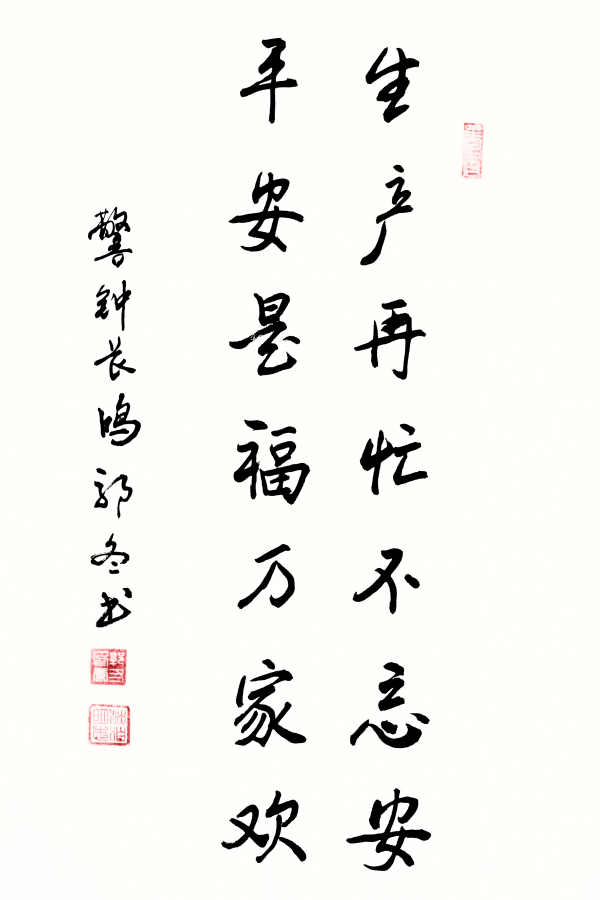 生产再忙不忘安
平安是福万家欢
警钟长鸣郭冬书